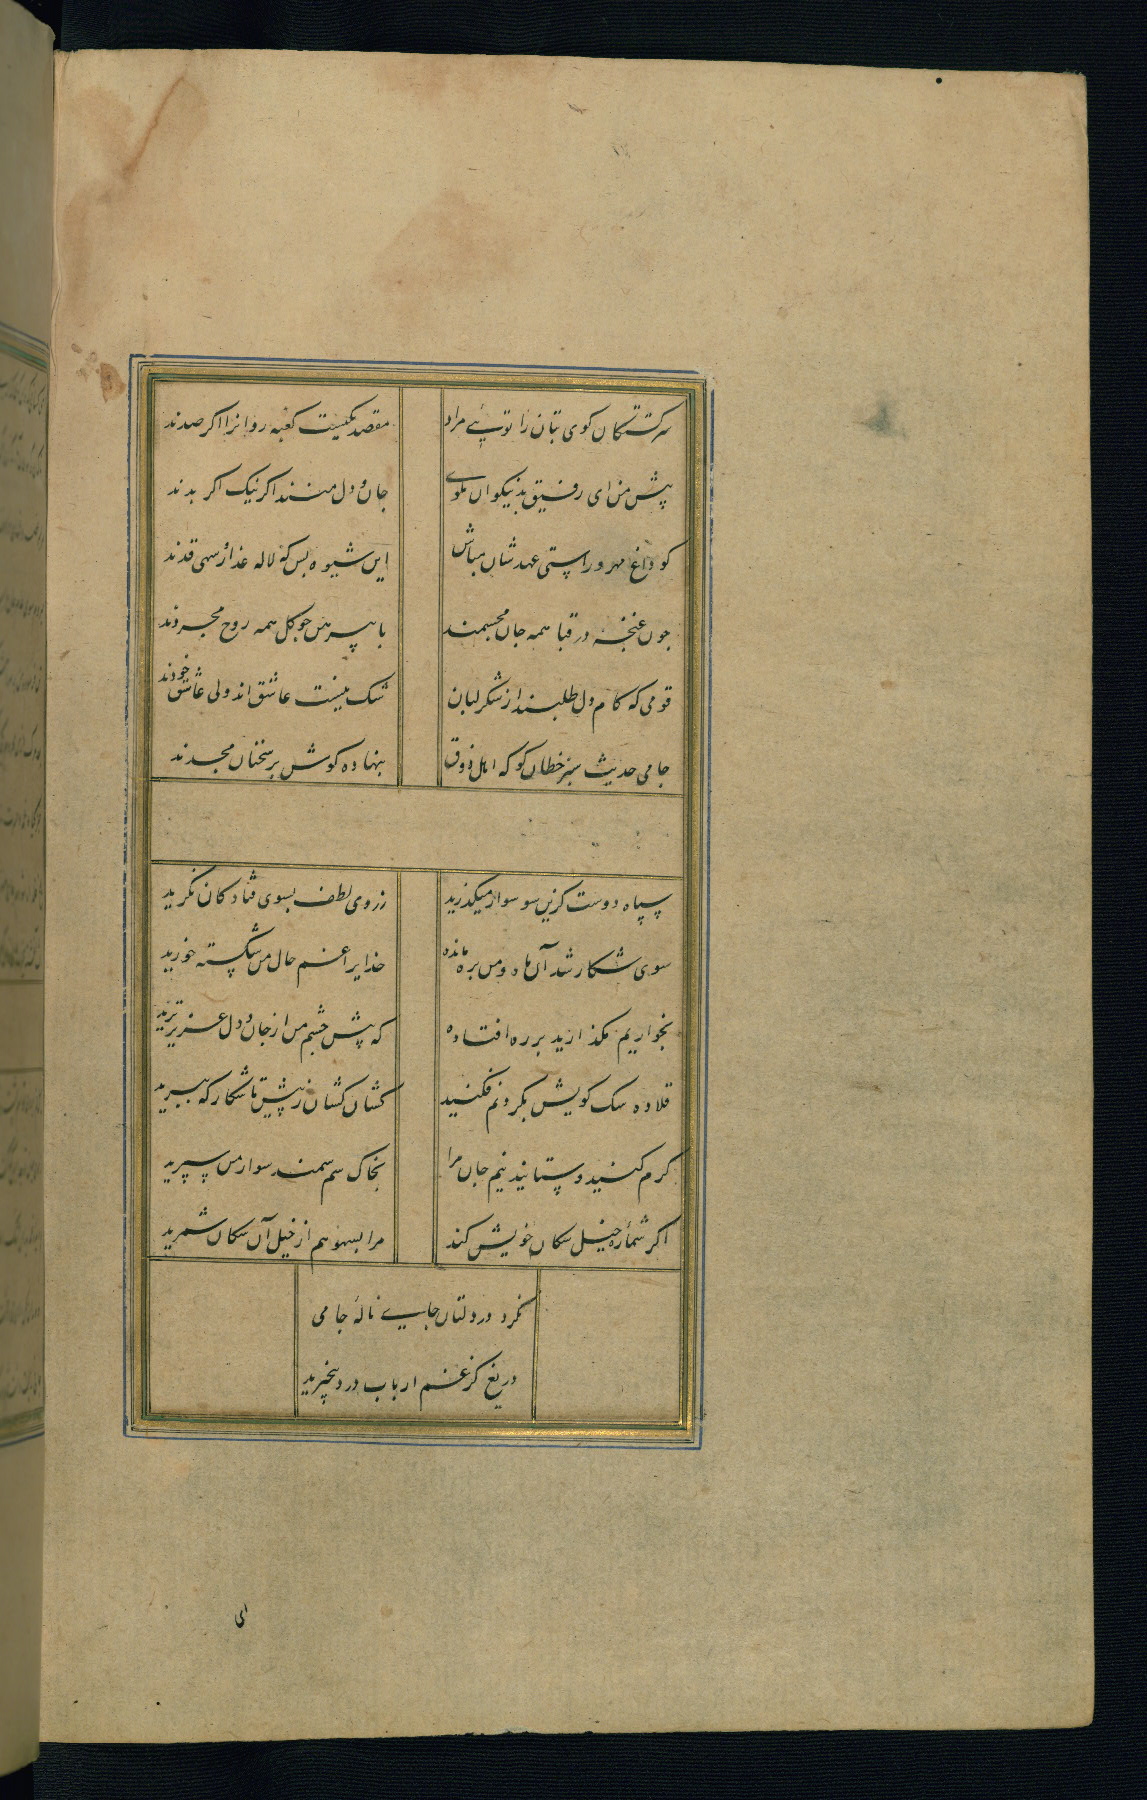 سرگشتگان کوی بتان را توئی مراد مقصد یکیست کعبه روانرا اگر صدند
پیش من ای رفیق بد نیکوان مگوی جان و دل منند اگر نیک اگر بدند
کو داغ مهر و راستی عهدشان مباش این شیوه بس که لاله عذار و سهی قدند
چون غنچه در قبا همه جان مجسمند با پیرهن چو گل همه روح مجردند
قومی که کام دل طلبند از شکر لبان شک نیست عاشق اند ولی عاشق خودند
جامی حدیث سبز خطان گو که اهل ذوق بنهاده گوش بر سخنان مجددند
سپاه دوست کزین سو سوار میگذرید ز روی لطف بسوی فتادگان نگرید
سوی شکار شد آن ماه و من بره مانده خدایرا غم حال من شکسته خورید
بخواریم مگذارید بر ره افتاده که پیش چشم من از جان و دل عزیزترید
قلاده سگ کویش بگردنم فکنید کشان کشان ز پیش تا شکارگه ببرید
کرم کنید و ستانید نیم جان مرا بخاک سم سمند سوار من سپرید
اگر شماره خیل سگان خویش کند مرا بسهو هم از خیل آن سگان شمرید
نکرد در دلتان جایی نالهٔ جامی
دریغ کز غم ارباب درد بیخبرید
ای